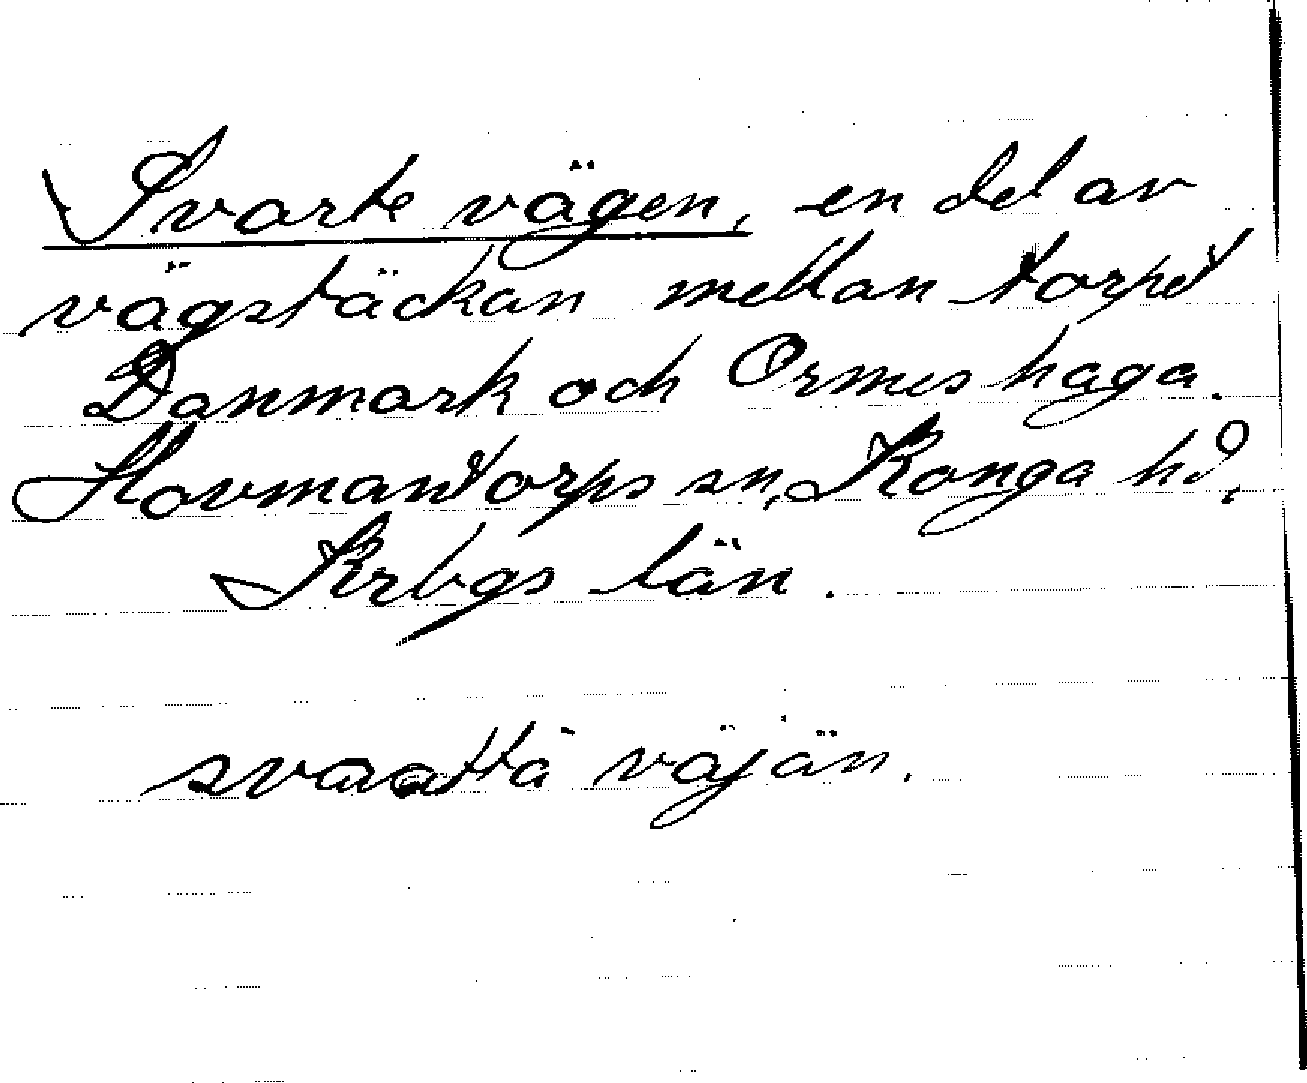 Svarte vägen, en del av
vägstäckan mellan torpet
Danmark och Ormeshaga.
Hovmantorps sn, Konga hd,
Krbgs län.
svaattä väjän.